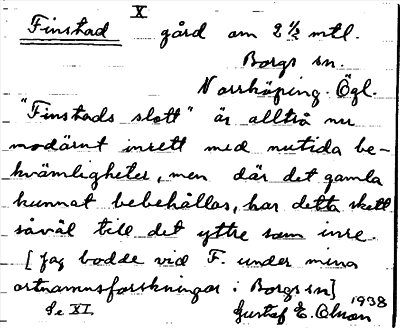 X
Finstad gård om 2 1/2 mtl.
Borgs sn.
Norrköping. Ögl.
"Finstads slott" är alltså nu
modärnt inrett med nutida be-
kvämligheter, men där det gamla
kunnat bebehållas, har detta skett
såväl till det yttre som inre.
[Jag bodde vid F. under mina
ortnamnsforskningar i Borgs sn]
Se XI. 1938
Gustaf E. Olsson